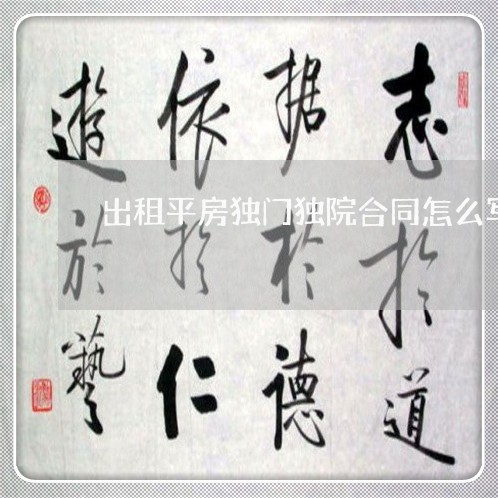 志扵道
据扵德
依扵仁
遊於藝
出租平房独门独院合同怎么